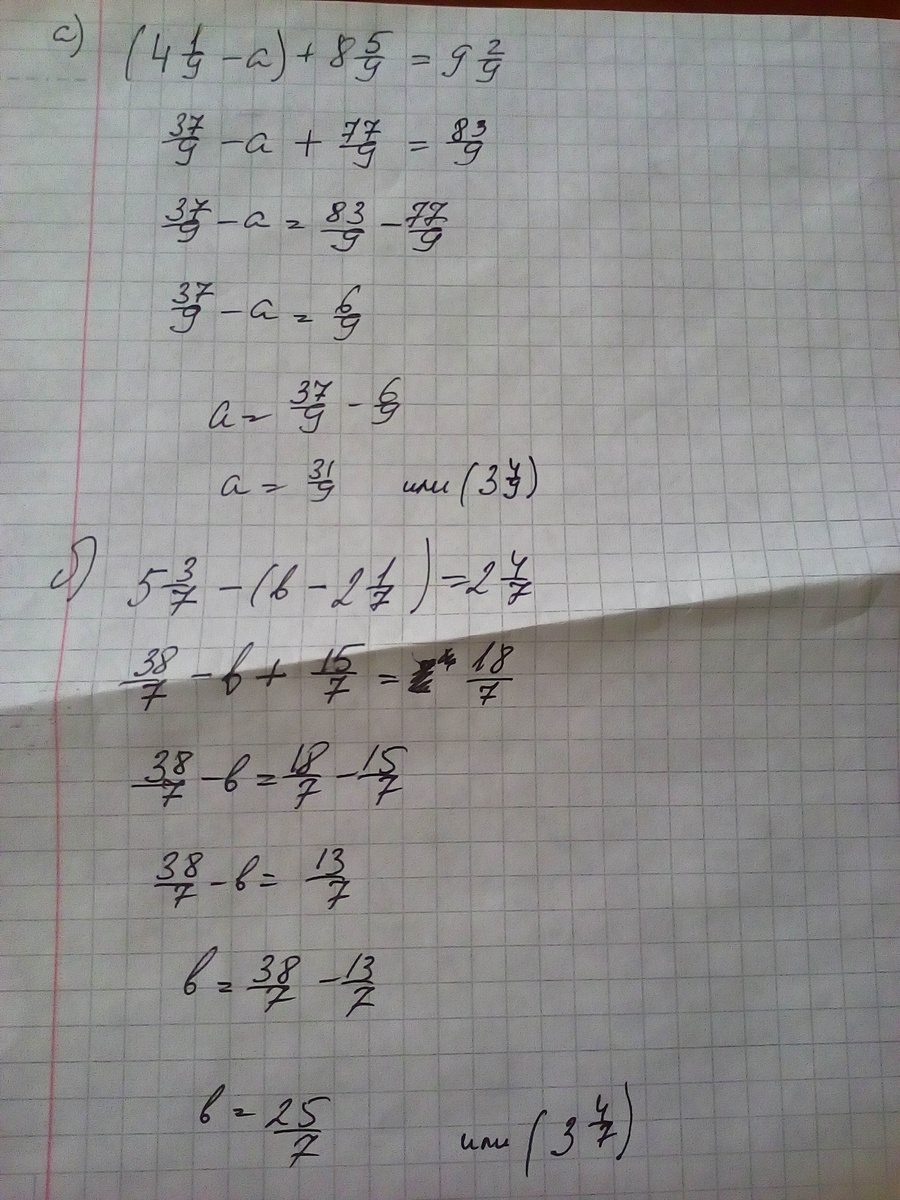 а) (4 1/9 - a) + 8 5/9 = 9 2/9
37/9 - a + 77/9 = 83/9
37/9 - a = 83/9 - 77/9
37/9 - a = 6/9
a = 37/9 - 6/9
a = 31/9 или (3 4/9)
б) 5 3/7 - (в - 2 1/7) = 2 4/7
38/7 - в + 15/7 = 18/7
38/7 - в = 18/7 - 15/7
38/7 - в = 13/7
в = 38/7 - 13/7
в = 25/7 или (3 4/7)